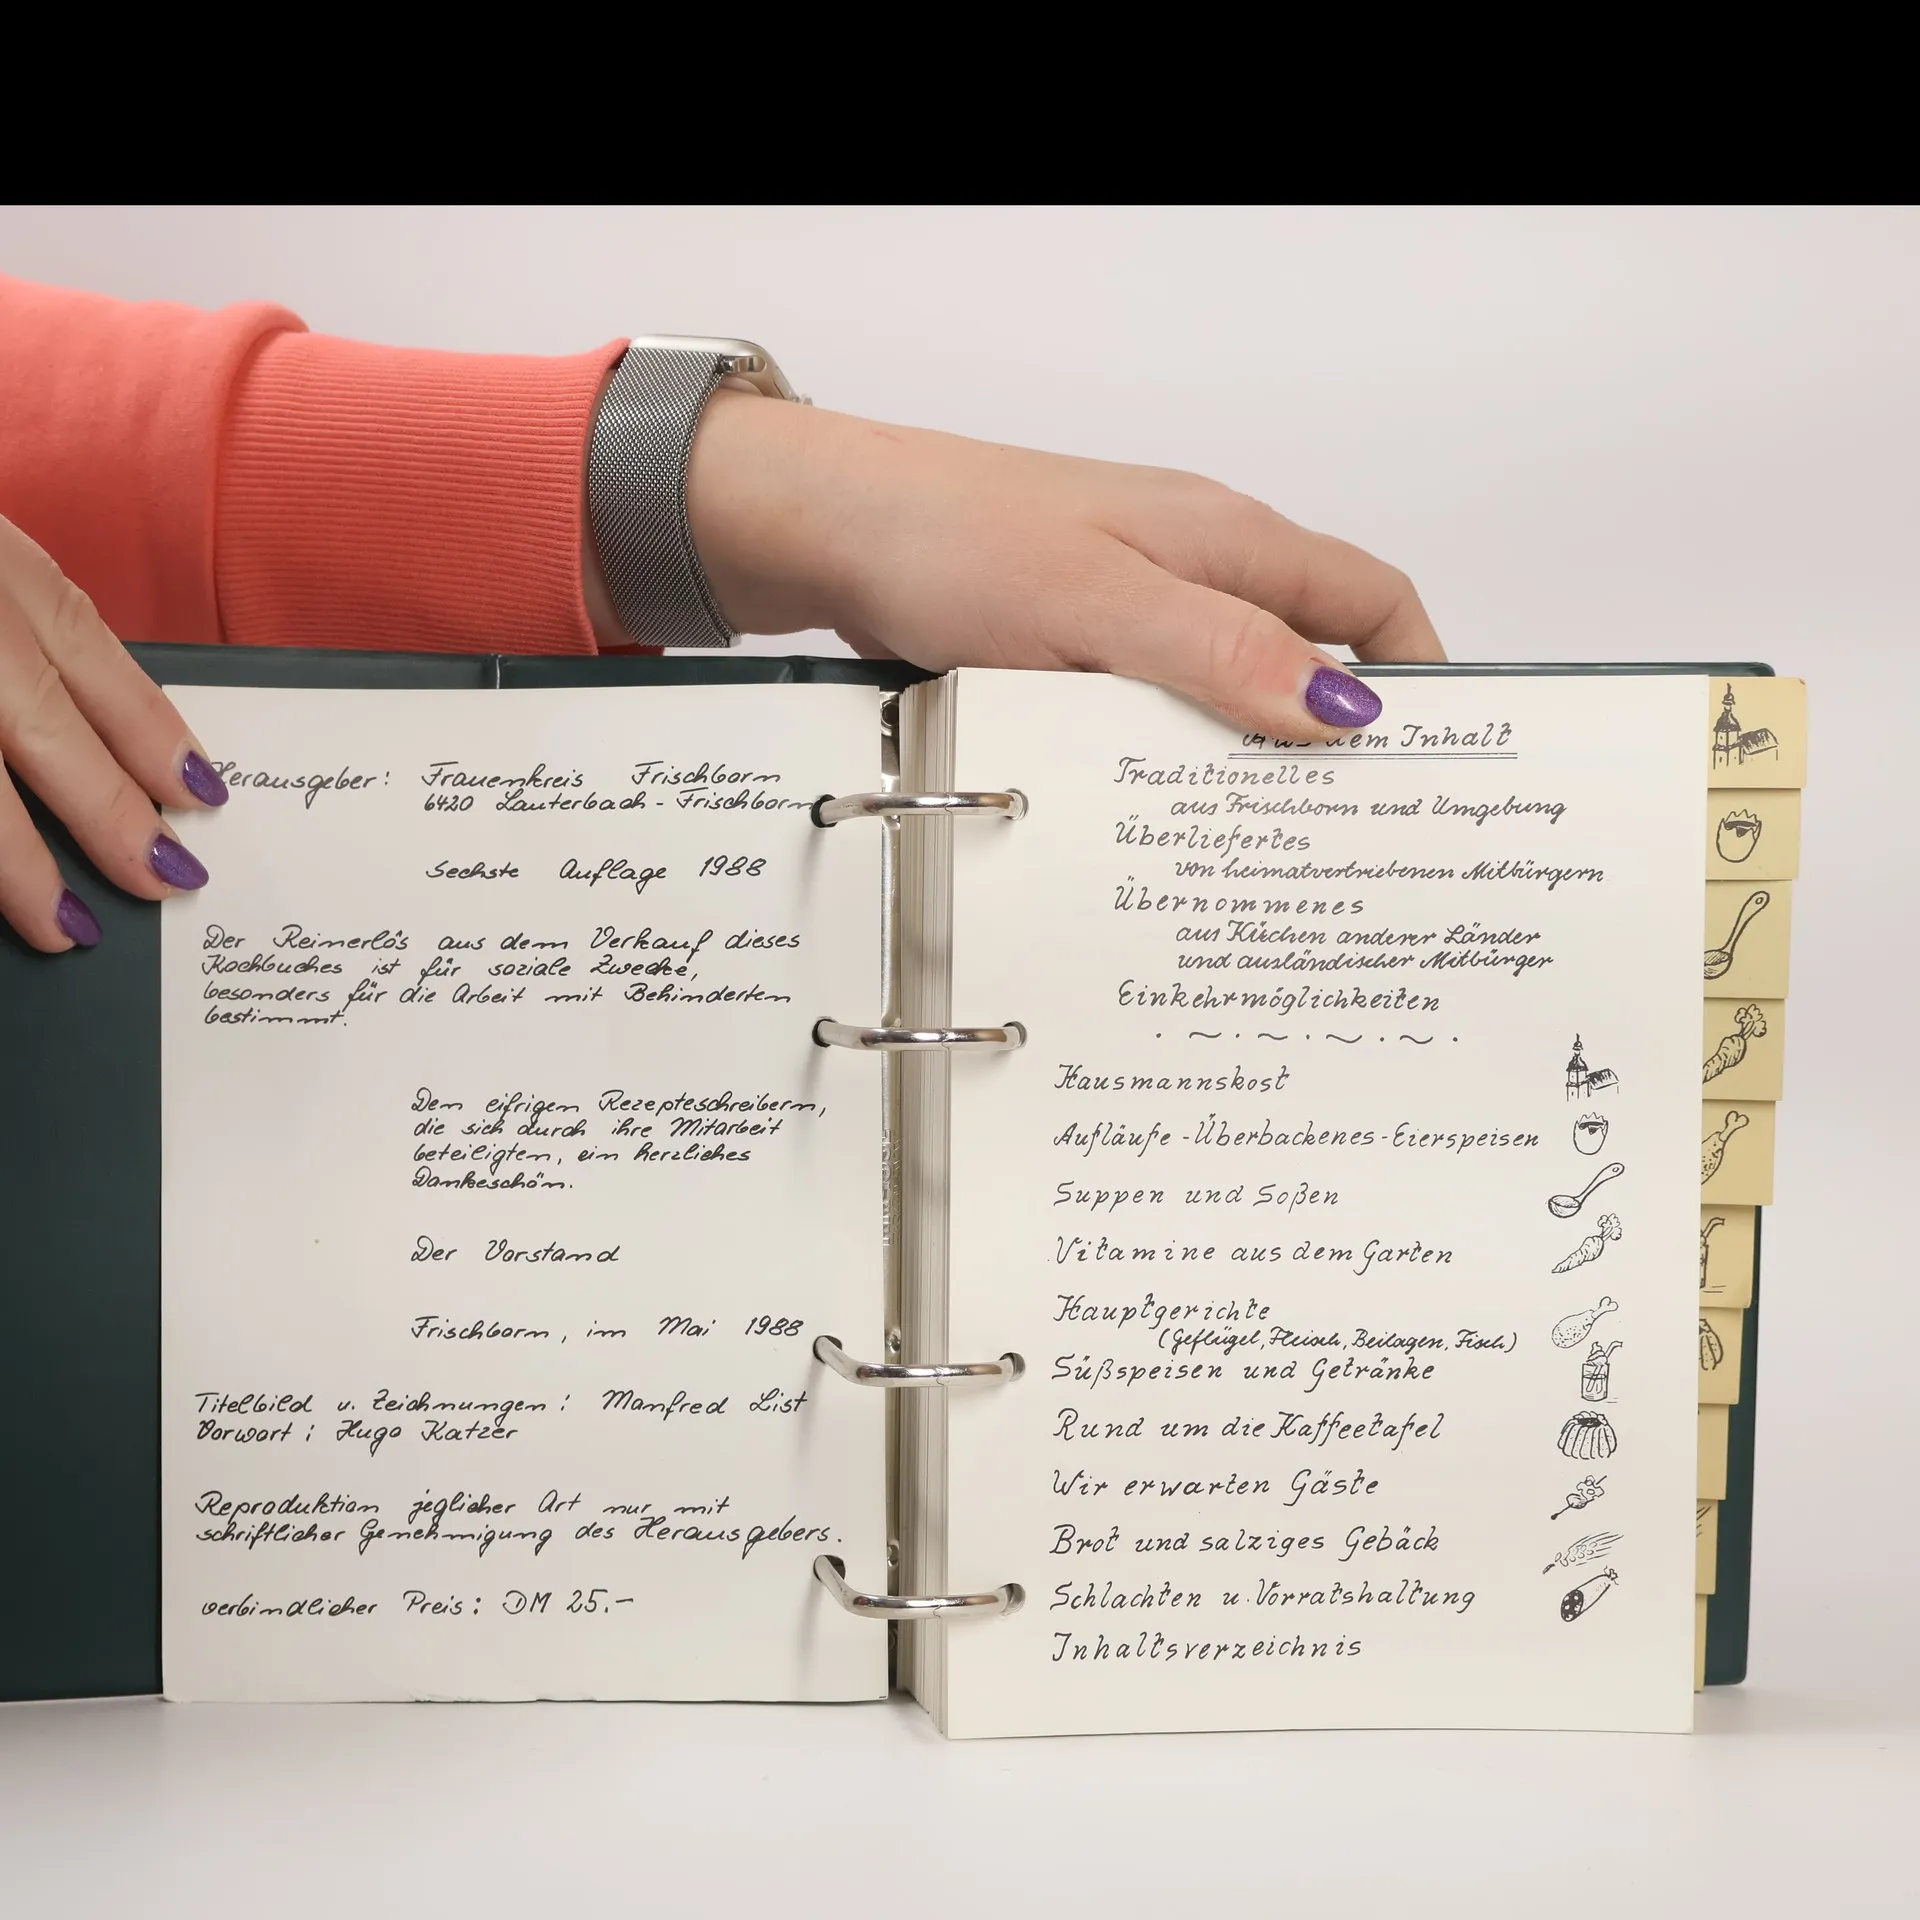 Herausgeber: Frauenkreis Frischborn
6420 Lauterbach - Frischborn
Sechste Auflage 1988
Der Reinerlös aus dem Verkauf dieses
Kochbuches ist für soziale Zwecke,
besonders für die Arbeit mit Behinderten
bestimmt.
Den eifrigen Rezepteschreibern,
die sich durch ihre Mitarbeit
beteiligten, ein herzliches
Dankeschön.
Der Vorstand
Frischborn, im Mai 1988
Titelbild u. Zeichnungen: Manfred List
Vorwort: Hugo Katzer
Reproduktion jeglicher Art nur mit
schriftlicher Genehmigung des Herausgebers.
verbindlicher Preis: DM 25.-
Aus dem Inhalt
Traditionelles
aus Frischborn und Umgebung
Überliefertes
von heimatvertriebenen Mitbürgern
Übernommenes
aus Küchen anderer Länder
und ausländischer Mitbürger
Einkehrmöglichkeiten
Hausmannskost
Aufläufe - Überbackenes - Eierspeisen
Suppen und Soßen
Vitamine aus dem Garten
Hauptgerichte
(Geflügel, Fleisch, Beilagen, Fisch)
Süßspeisen und Getränke
Rund um die Kaffeetafel
Wir erwarten Gäste
Brot und salziges Gebäck
Schlachten u. Vorratshaltung
Inhaltsverzeichnis